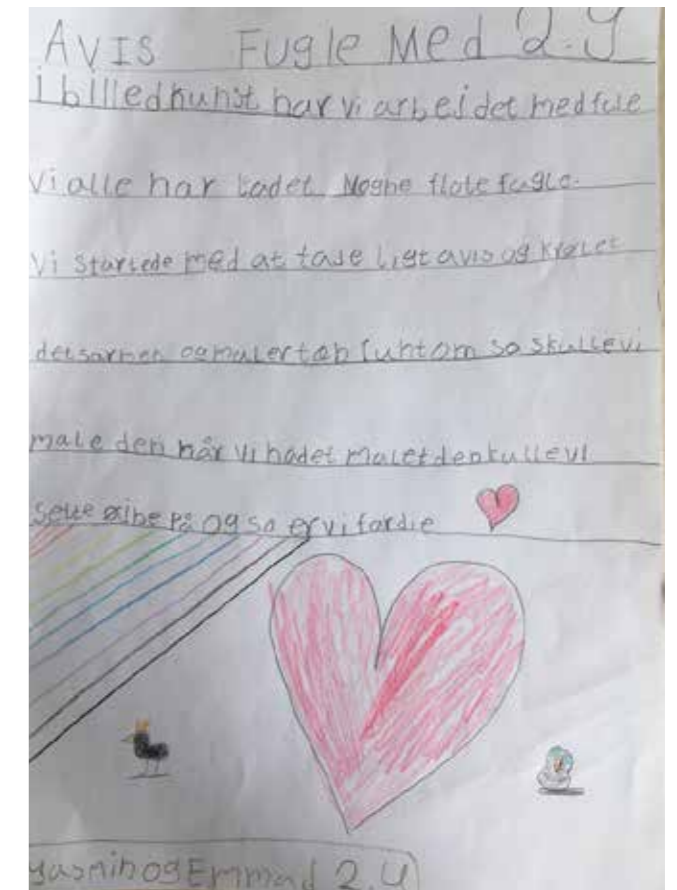 AVIS Fugle Med 2.Y
i billedkunst har vi arbejdet med fule
Vi alle har ladet Noghe flote fugle.
Vi Startede med at tase ligt avis og krølet
det sarmen og maler tap runt om so skulle vi
male den når vi hadet malet den kulle vi
Sette øibe på og so er vi fardie
yasmin og Emmad 2.Y